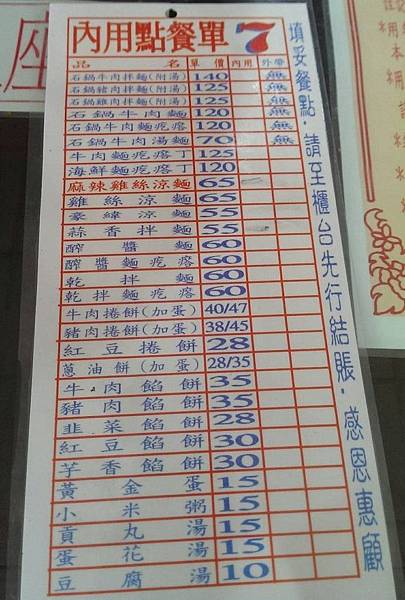 內用點餐單 7
品名 單價 內用 外帶
石鍋牛肉拌麵(附湯) 140 無
石鍋豬肉拌麵(附湯) 125 無
石鍋雞肉拌麵(附湯) 125 無
石鍋牛肉麵 120 無
石鍋牛肉麵疙瘩 120 無
石鍋牛肉湯麵 70 無
牛肉麵疙瘩丁 125
海鮮麵疙瘩丁 120
麻辣雞絲涼麵 65
雞絲涼麵 65
素緯涼麵 55
蒜香拌麵 55
醡醬麵 60
醡醬麵疙瘩 60
乾拌麵 60
乾拌麵疙瘩 60
牛肉捲餅(加蛋) 40/47
豬肉捲餅(加蛋) 38/45
紅豆捲餅 28
蔥油餅(加蛋) 28/35
牛肉餡餅 35
豬肉餡餅 35
韭菜餡餅 28
紅豆餡餅 30
芋香餡餅 30
黃金蛋 15
小米粥 15
貢丸湯 15
蛋花湯 15
豆腐湯 10
填妥餐點,請至櫃台先行結賬,感恩惠顧
座